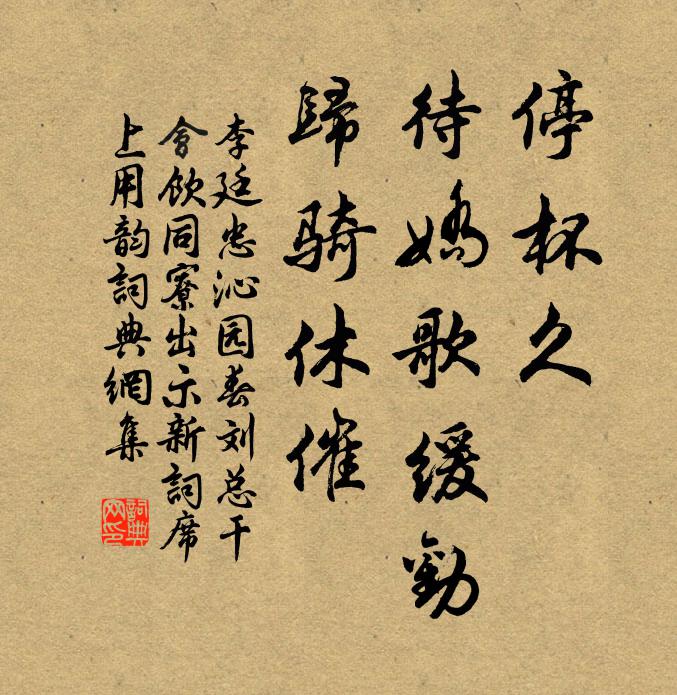 停杯久
待嬌歌緩勸
歸騎休催
李廷忠沁园春刘总干
會飲同寮出示新詞席
上用韵詞典網集
詞典网印